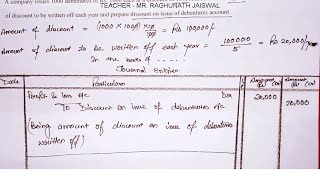 A company issues 1000 debentures of
TEACHER - MR. RAGHUNATH JAISWAL
of discount to be written off each year and prepare discount on issue of debentures account.
Amount of discount = (1000 × 100) × 10/100 = Rs 100000/-
Amount of discount to be written off each year = 100000/5 = Rs 20,000/-
In the books of .....
Journal Entries
Date Particulars Amount (Dr) Amount (Cr)
Profit & loss a/c Dr 20,000
To Discount on issue of debentures a/c 20,000
(Being amount of discount on issue of debentures
written off)